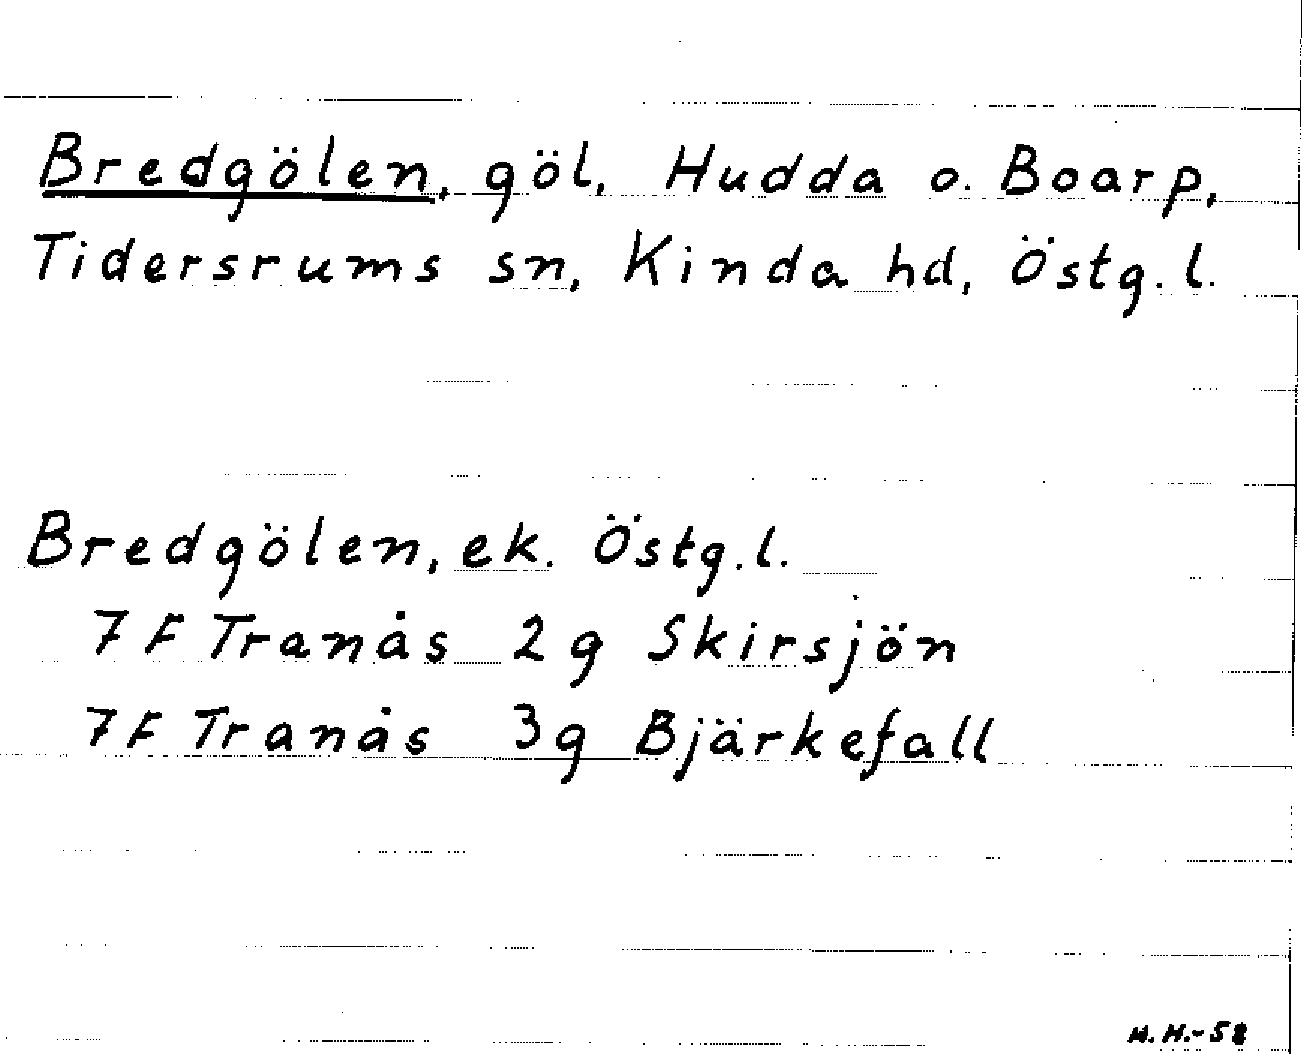 Bredgölen, göl, Hudda o. Boarp,
Tidersrums sn, Kinda hd, Östg.l.
Bredgölen, ek. Östg.l.
7 F Tranås 2 g Skirsjön
7 F Tranås 3g Bjärkefall
H.H.-58